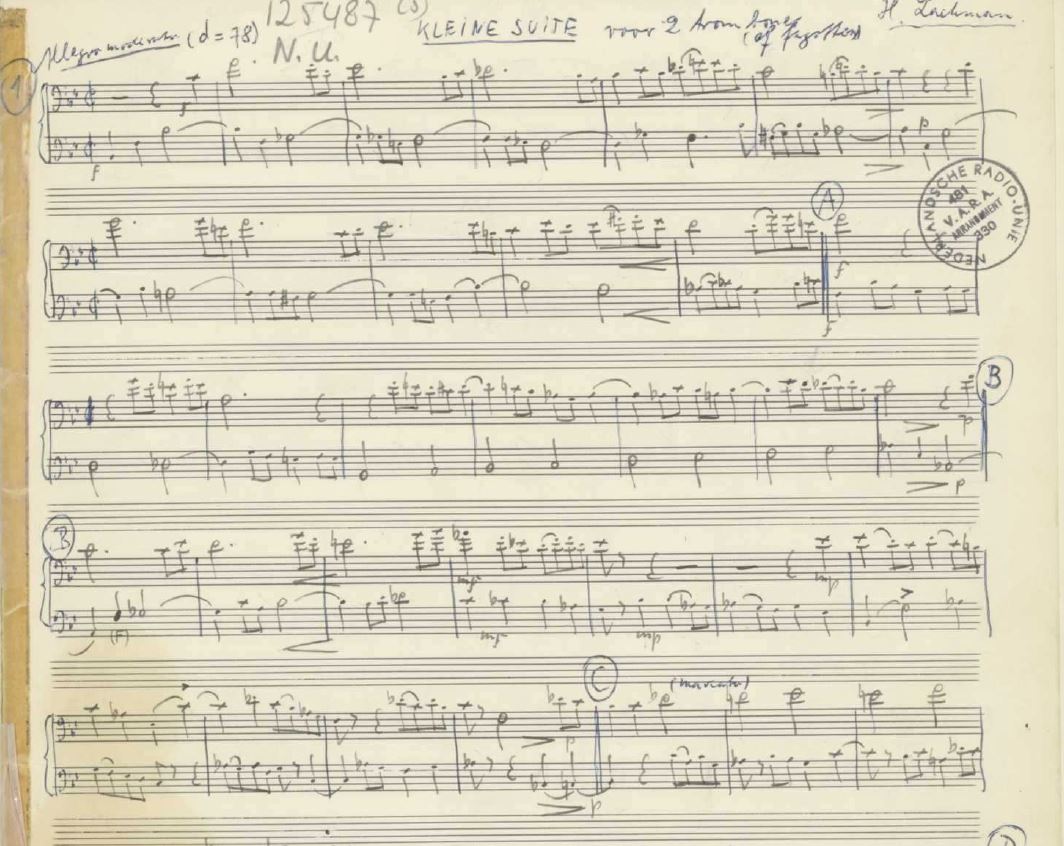 125487 (S)
KLEINE SUITE voor 2 trombones H. Lachman.
(of fagotten)
Allegro moderato (d = 78) N.U.
1
f
f
p
NEDERLANDSCHE RADIO-UNIE
481
V.A.R.A.
ARRANGEMENT
330
A
f
f
B
p
p
B
mf
(F)
mf
mp
mp
C
(marcato)
p
p
D